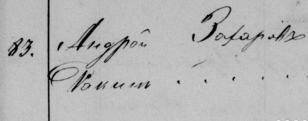 83. Андрей Захаровъ
Яким . . . . .